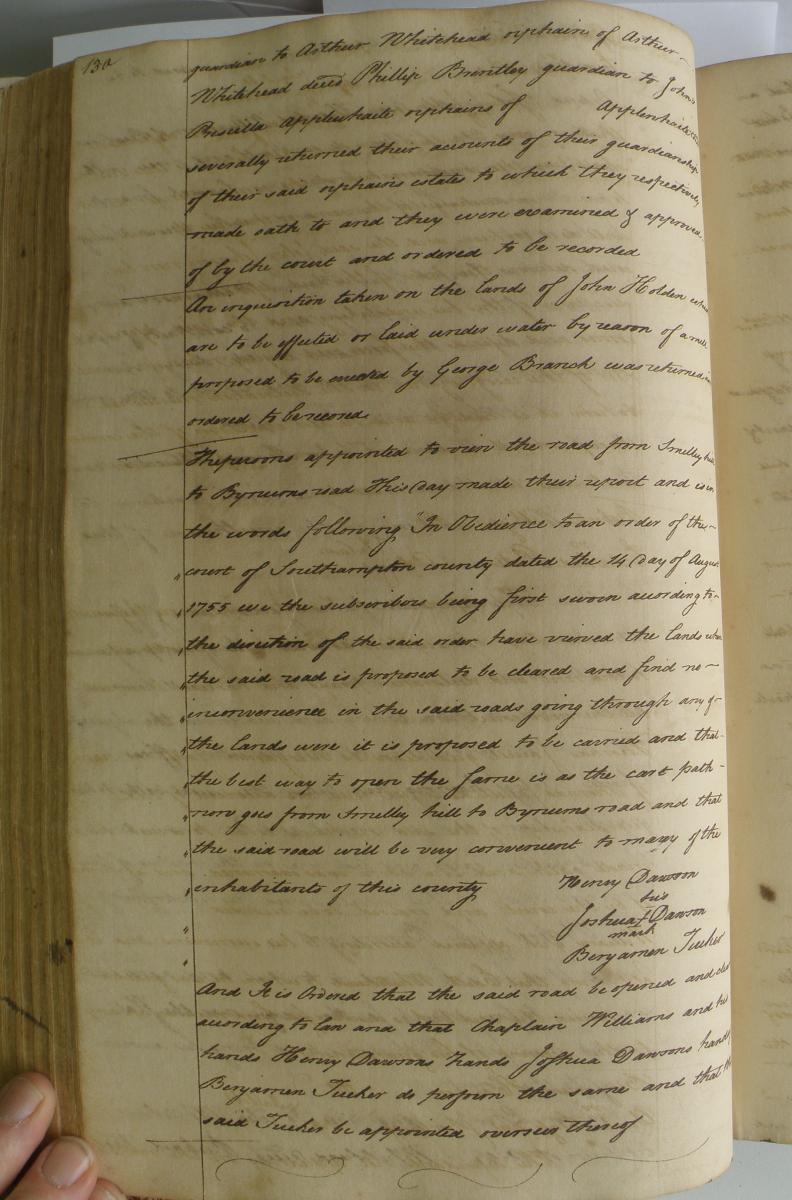 130
guardian to Arthur Whitehead orphain of Arthur
Whitehead deced Phillip Brantley guardian to John
Priscilla Applewhaite orphains of Applewhaite
severally returned their accounts of their guardianship
of their said orphains estates to which they respectively
made oath to and they were examined & approved
of by the court and ordered to be recorded
An inquisition taken on the lands of John Holden
are to be effected or laid under water by reason of a mill
proposed to be erected by George Branch was returned
ordered to be record
The persons appointed to view the road from Smelley
to Bynums road This Day made their report and is in
the words following "In Obedience to an order of the
" court of Southampton county dated the 14 Day of August
" 1755 we the subscribers being first sworn according to
" the direction of the said order have viewed the lands
" the said road is proposed to be cleared and find no
" inconvenience in the said roads going through any of
" the lands were it is proposed to be carried and that
" the best way to open the same is as the cart path
" now goes from Smelley hill to Bynums road and that
" the said road will be very convenient to many of the
" inhabitants of this county Henry Dawson
" Joshua his + mark Dawson
" Benjamen Tucker
And It is Ordered that the said road be opened and
according to law and that Chaplain Williams and his
hands Henry Dawsons hands Joshua Dawsons hands
Benjamen Tucker do perform the same and that
said Tucker be appointed overseer thereof